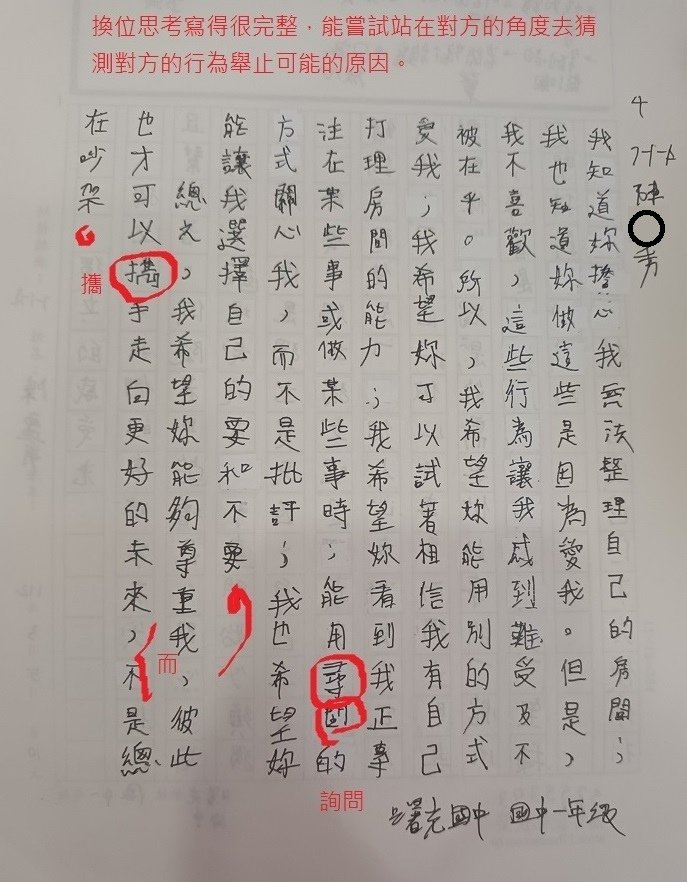 換位思考寫得很完整，能嘗試站在對方的角度去猜
測對方的行為舉止可能的原因。
4
陳
我知道妳擔心我無法整理自己的房間；
我也知道妳做這些是因為愛我。但是，
我不喜歡，這些行為讓我感到難受及不
被在乎。所以，我希望妳能用別的方式
愛我；我希望妳可以試著相信我有自己
打理房間的能力；我希望妳看到我正專
注在某些事或做某些事時；能用尋問的
詢問
方式關心我，而不是批評；我也希望妳
能讓我選擇自己的要和不要。
總之，我希望妳能夠尊重我，彼此
也才可以攜手走向更好的未來，不是總
而
攜
在吵架。
曙光國中 國中一年級